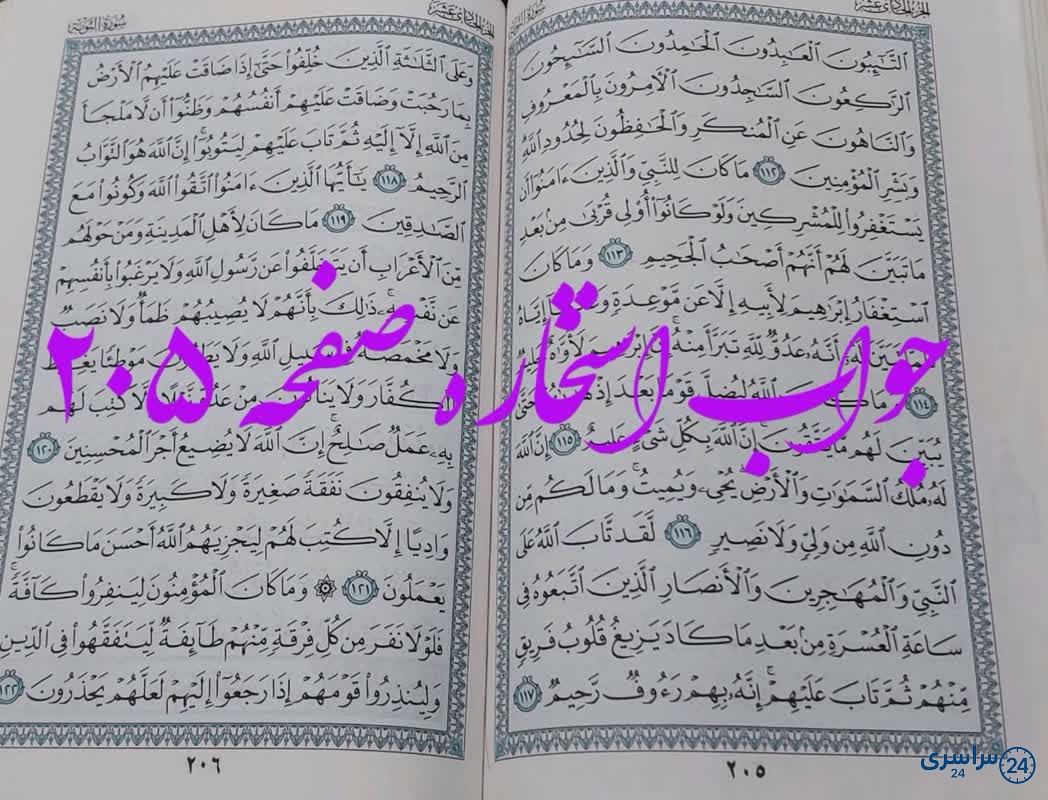 الجزء الحادى عشر
سورة التوبة
ٱلتَّٰٓئِبُونَ ٱلْعَٰبِدُونَ ٱلْحَٰمِدُونَ ٱلسَّٰٓئِحُونَ
ٱلرَّٰكِعُونَ ٱلسَّٰجِدُونَ ٱلْءَامِرُونَ بِٱلْمَعْرُوفِ
وَٱلنَّاهُونَ عَنِ ٱلْمُنكَرِ وَٱلْحَٰفِظُونَ لِحُدُودِ ٱللَّهِ
وَبَشِّرِ ٱلْمُؤْمِنِينَ ١١٢ مَا كَانَ لِلنَّبِيِّ وَٱلَّذِينَ ءَامَنُوٓا۟ أَن
يَسْتَغْفِرُوا۟ لِلْمُشْرِكِينَ وَلَوْ كَانُوٓا۟ أُو۟لِى قُرْبَىٰ مِنۢ بَعْدِ
مَا تَبَيَّنَ لَهُمْ أَنَّهُمْ أَصْحَٰبُ ٱلْجَحِيمِ ١١٣ وَمَا كَانَ
ٱسْتِغْفَارُ إِبْرَٰهِيمَ لِأَبِيهِ إِلَّا عَن مَّوْعِدَةٍ إِيَّاهُ
أَنَّهُۥ عَدُوٌّ لِّلَّهِ تَبَرَّأَ مِنْهُ إِنَّ إِبْرَٰهِيمَ لَأَوَّٰهٌ
١١٤ ٱللَّهُ لِيُضِلَّ قَوْمًۢا بَعْدَ حَتَّىٰ
يُبَيِّنَ لَهُم مَّا يَتَّقُونَ إِنَّ ٱللَّهَ بِكُلِّ شَىْءٍ عَلِيمٌ ١١٥ إِنَّ ٱللَّهَ
لَهُۥ مُلْكُ ٱلسَّمَٰوَٰتِ وَٱلْأَرْضِ يُحْىِۦ وَيُمِيتُ وَمَا لَكُم مِّن
دُونِ ٱللَّهِ مِن وَلِىٍّ وَلَا نَصِيرٍ ١١٦ لَّقَد تَّابَ ٱللَّهُ عَلَى
ٱلنَّبِىِّ وَٱلْمُهَٰجِرِينَ وَٱلْأَنصَارِ ٱلَّذِينَ ٱتَّبَعُوهُ فِى
سَاعَةِ ٱلْعُسْرَةِ مِنۢ بَعْدِ مَا كَادَ يَزِيغُ قُلُوبُ فَرِيقٍ
مِّنْهُمْ ثُمَّ تَابَ عَلَيْهِمْ إِنَّهُۥ بِهِمْ رَءُوفٌ رَّحِيمٌ ١١٧
٢٠٥
سورة التوبة
الجزء الحادى عشر
وَعَلَى ٱلثَّلَٰثَةِ ٱلَّذِينَ خُلِّفُوا۟ حَتَّىٰٓ إِذَا ضَاقَتْ عَلَيْهِمُ ٱلْأَرْضُ
بِمَا رَحُبَتْ وَضَاقَتْ عَلَيْهِمْ أَنفُسُهُمْ وَظَنُّوٓا۟ أَن لَّا مَلْجَأَ
مِنَ ٱللَّهِ إِلَّآ إِلَيْهِ ثُمَّ تَابَ عَلَيْهِمْ لِيَتُوبُوٓا۟ إِنَّ ٱللَّهَ هُوَ ٱلتَّوَّابُ
ٱلرَّحِيمُ ١١٨ يَٰٓأَيُّهَا ٱلَّذِينَ ءَامَنُوا۟ ٱتَّقُوا۟ ٱللَّهَ وَكُونُوا۟ مَعَ
ٱلصَّٰدِقِينَ ١١٩ مَا كَانَ لِأَهْلِ ٱلْمَدِينَةِ وَمَنْ حَوْلَهُم
مِّنَ ٱلْأَعْرَابِ أَن يَتَخَلَّفُوا۟ عَن رَّسُولِ ٱللَّهِ وَلَا يَرْغَبُوا۟ بِأَنفُسِهِمْ
عَن نَّفْسِهِۦ ذَٰلِكَ بِأَنَّهُمْ لَا يُصِيبُهُمْ ظَمَأٌ وَلَا نَصَبٌ
وَلَا مَخْمَصَةٌ فِى سَبِيلِ ٱللَّهِ وَلَا يَطَـُٔونَ مَوْطِئًا يَغِيظُ
ٱلْكُفَّارَ وَلَا يَنَالُونَ مِنْ عَدُوٍّ نَّيْلًا إِلَّا كُتِبَ لَهُم
بِهِۦ عَمَلٌ صَٰلِحٌ إِنَّ ٱللَّهَ لَا يُضِيعُ أَجْرَ ٱلْمُحْسِنِينَ ١٢٠
وَلَا يُنفِقُونَ نَفَقَةً صَغِيرَةً وَلَا كَبِيرَةً وَلَا يَقْطَعُونَ
وَادِيًا إِلَّا كُتِبَ لَهُمْ لِيَجْزِيَهُمُ ٱللَّهُ أَحْسَنَ مَا كَانُوا۟
يَعْمَلُونَ ١٢١ ۞ وَمَا كَانَ ٱلْمُؤْمِنُونَ لِيَنفِرُوا۟ كَآفَّةً
فَلَوْلَا نَفَرَ مِن كُلِّ فِرْقَةٍ مِّنْهُمْ طَآئِفَةٌ لِّيَتَفَقَّهُوا۟ فِى ٱلدِّينِ
وَلِيُنذِرُوا۟ قَوْمَهُمْ إِذَا رَجَعُوٓا۟ إِلَيْهِمْ لَعَلَّهُمْ يَحْذَرُونَ ١٢٢
٢٠٦
جواب استخاره صفحه ۲۰۵
سراسری
24
24